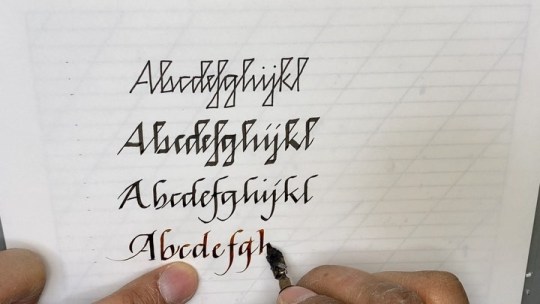 Abcdefghijkl
Abcdefghijkl
Abcdefghijkl
Abcdefgh